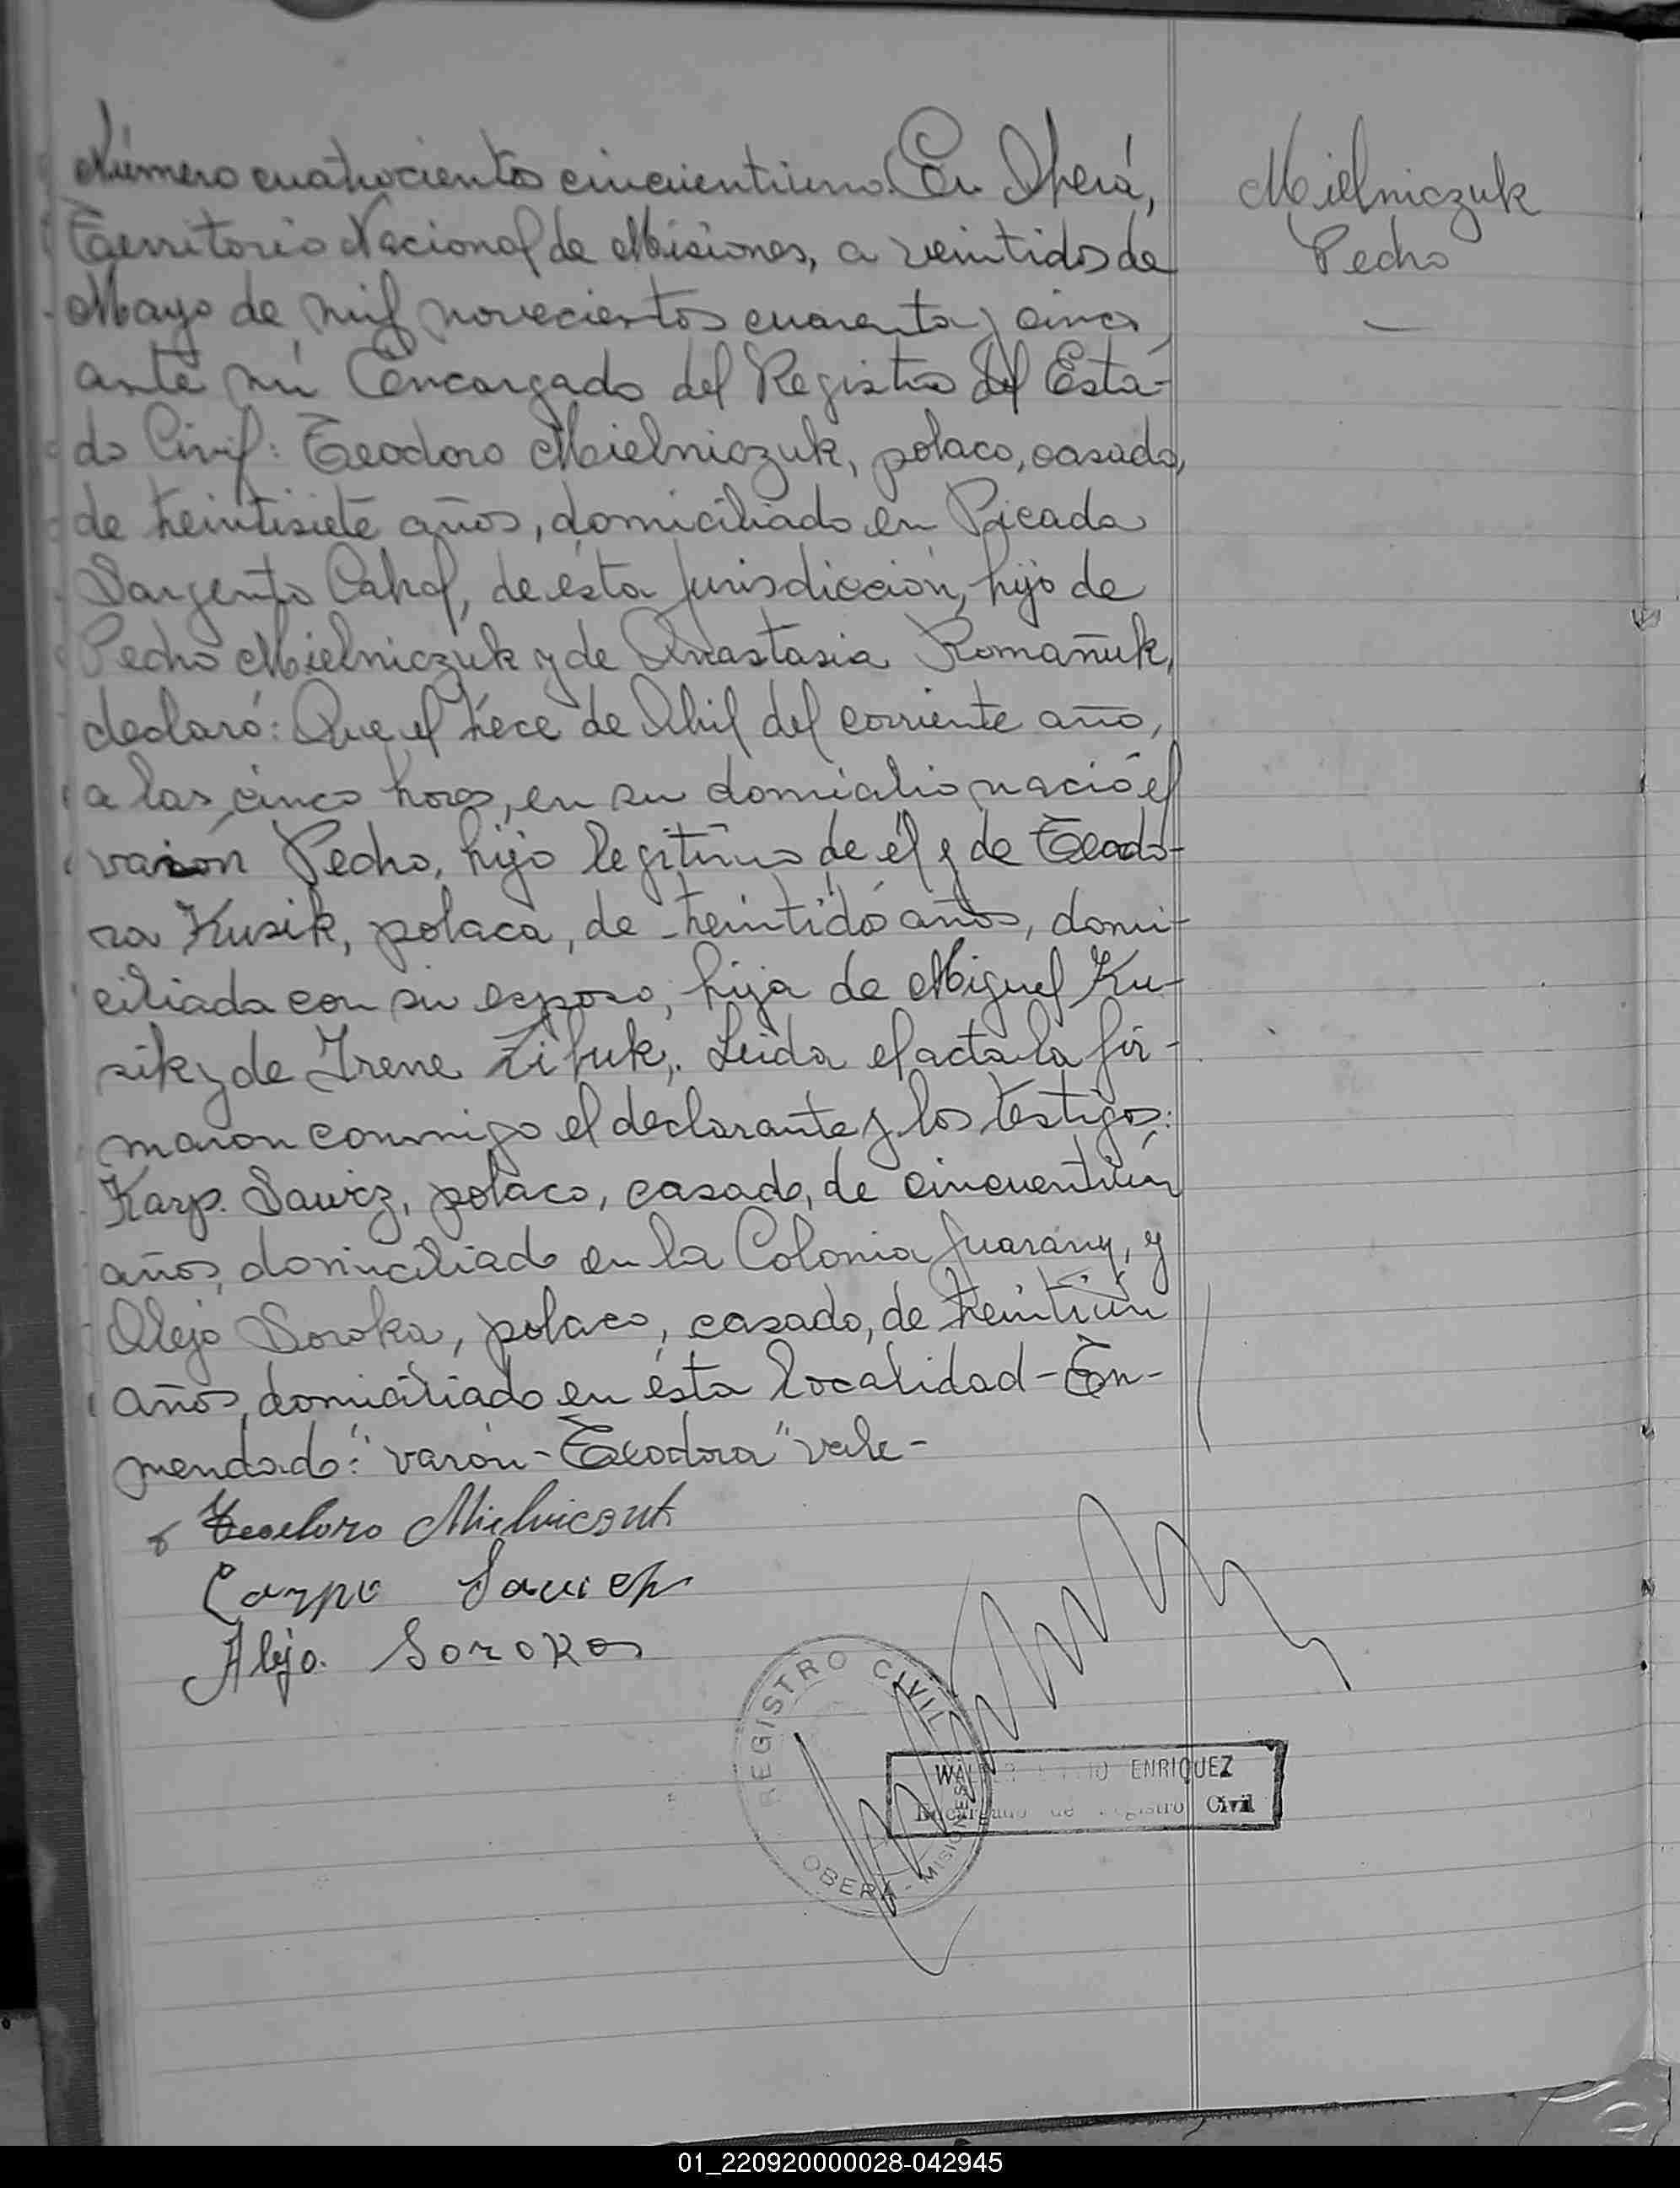 Número cuatrocientos cincuentiuno. En Oberá,
Territorio Nacional de Misiones, a veintidos de
Mayo de mil novecientos cuarenta y cinco,
ante mí Encargado del Registro del Esta-
do Civil: Teodoro Mielniczuk, polaco, casado,
de treintisiete años, domiciliado en Picada
Sargento Cabral, de ésta Jurisdicción, hijo de
Pedro Mielniczuk y de Anastasia Romañuk,
declaró: Que el trece de Abril del corriente año,
a las cinco horas, en su domicilio nació el
varón Pedro, hijo legítimo de él y de Teodo-
ra Kusik, polaca, de treintidó años, domi-
ciliada con su esposo, hija de Miguel Ku-
sik y de Irene. Leida el acta la fir-
maron conmigo el declarante y los testigos:
Karp. Sawicz, polaco, casado, de cincuentiún
años, domiciliado en la Colonia Guarány, y
Alejo Soroka, polaco, casado, de treintiún
años, domiciliado en ésta localidad - En-
mendado: "varón - Teodora" vale -
Teodoro Mielniczuk
Carpo Sawicz
Alejo. Soroka
Mielniczuk
Pedro
REGISTRO CIVIL
OBERÁ - MISIONES
ENRIQUEZ
Encargado de Registro Civil
01_220920000028-042945